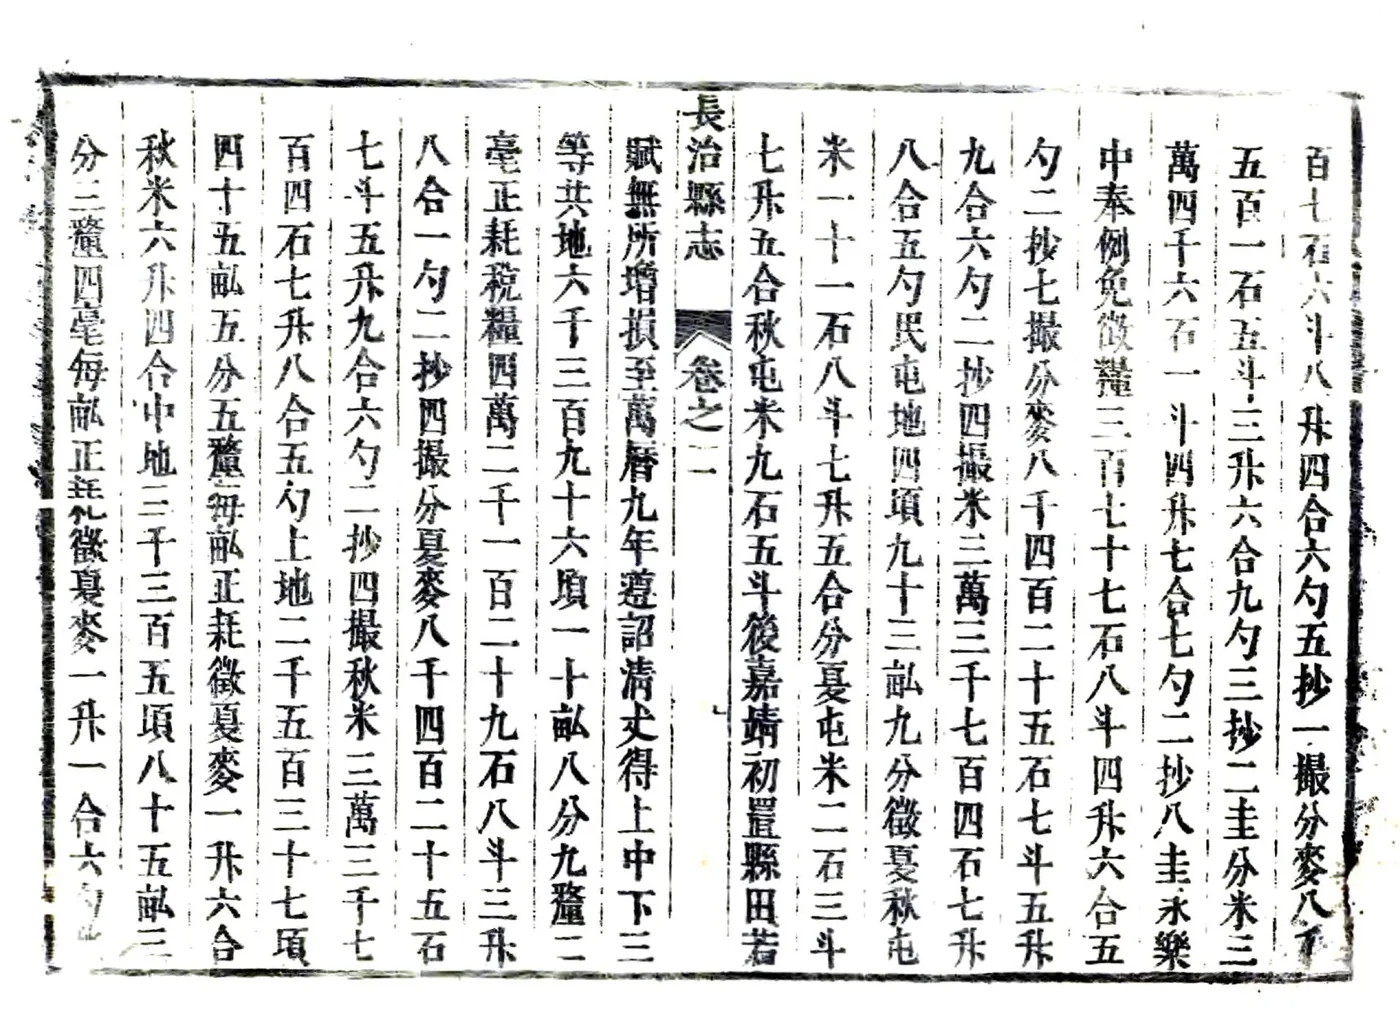 百七石六斗八升四合六勺五抄一撮分麥八千
五百一石五斗三升六合九勺三抄二圭分米三
萬四千六石一斗四升七合七勺二抄八圭永樂
中奉例免徵糧三百七十七石八斗四升六合五
勺二抄七撮分麥八千四百二十五石七斗五升
九合六勺二抄四撮米三萬三千七百四石七升
八合五勺民屯地四頃九十三畝九分徵夏秋屯
米一十一石八斗七升五合分夏屯米二石三斗
七升五合秋屯米九石五斗後嘉靖初置縣田若
長治縣志 卷之二
賦無所增損至萬曆九年遵詔清丈得上中下三
等共地六千三百九十六頃一十畝八分九釐二
毫正耗稅糧四萬二千一百二十九石八斗三升
八合一勺二抄四撮分夏麥八千四百二十五石
七斗五升九合六勺二抄四撮秋米三萬三千七
百四石七升八合五勺上地二千五百三十七頃
四十五畝五分五釐每畝正耗徵夏麥一升六合
秋米六升四合中地三千三百五頃八十五畝三
分三釐四毫每畝正耗徵夏麥一升一合六勺